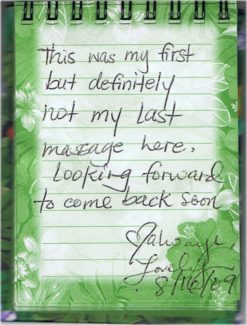 This was my first
but definitely
not my last
massage here.
Looking forward
to come back soon
♡always,
8/16/09